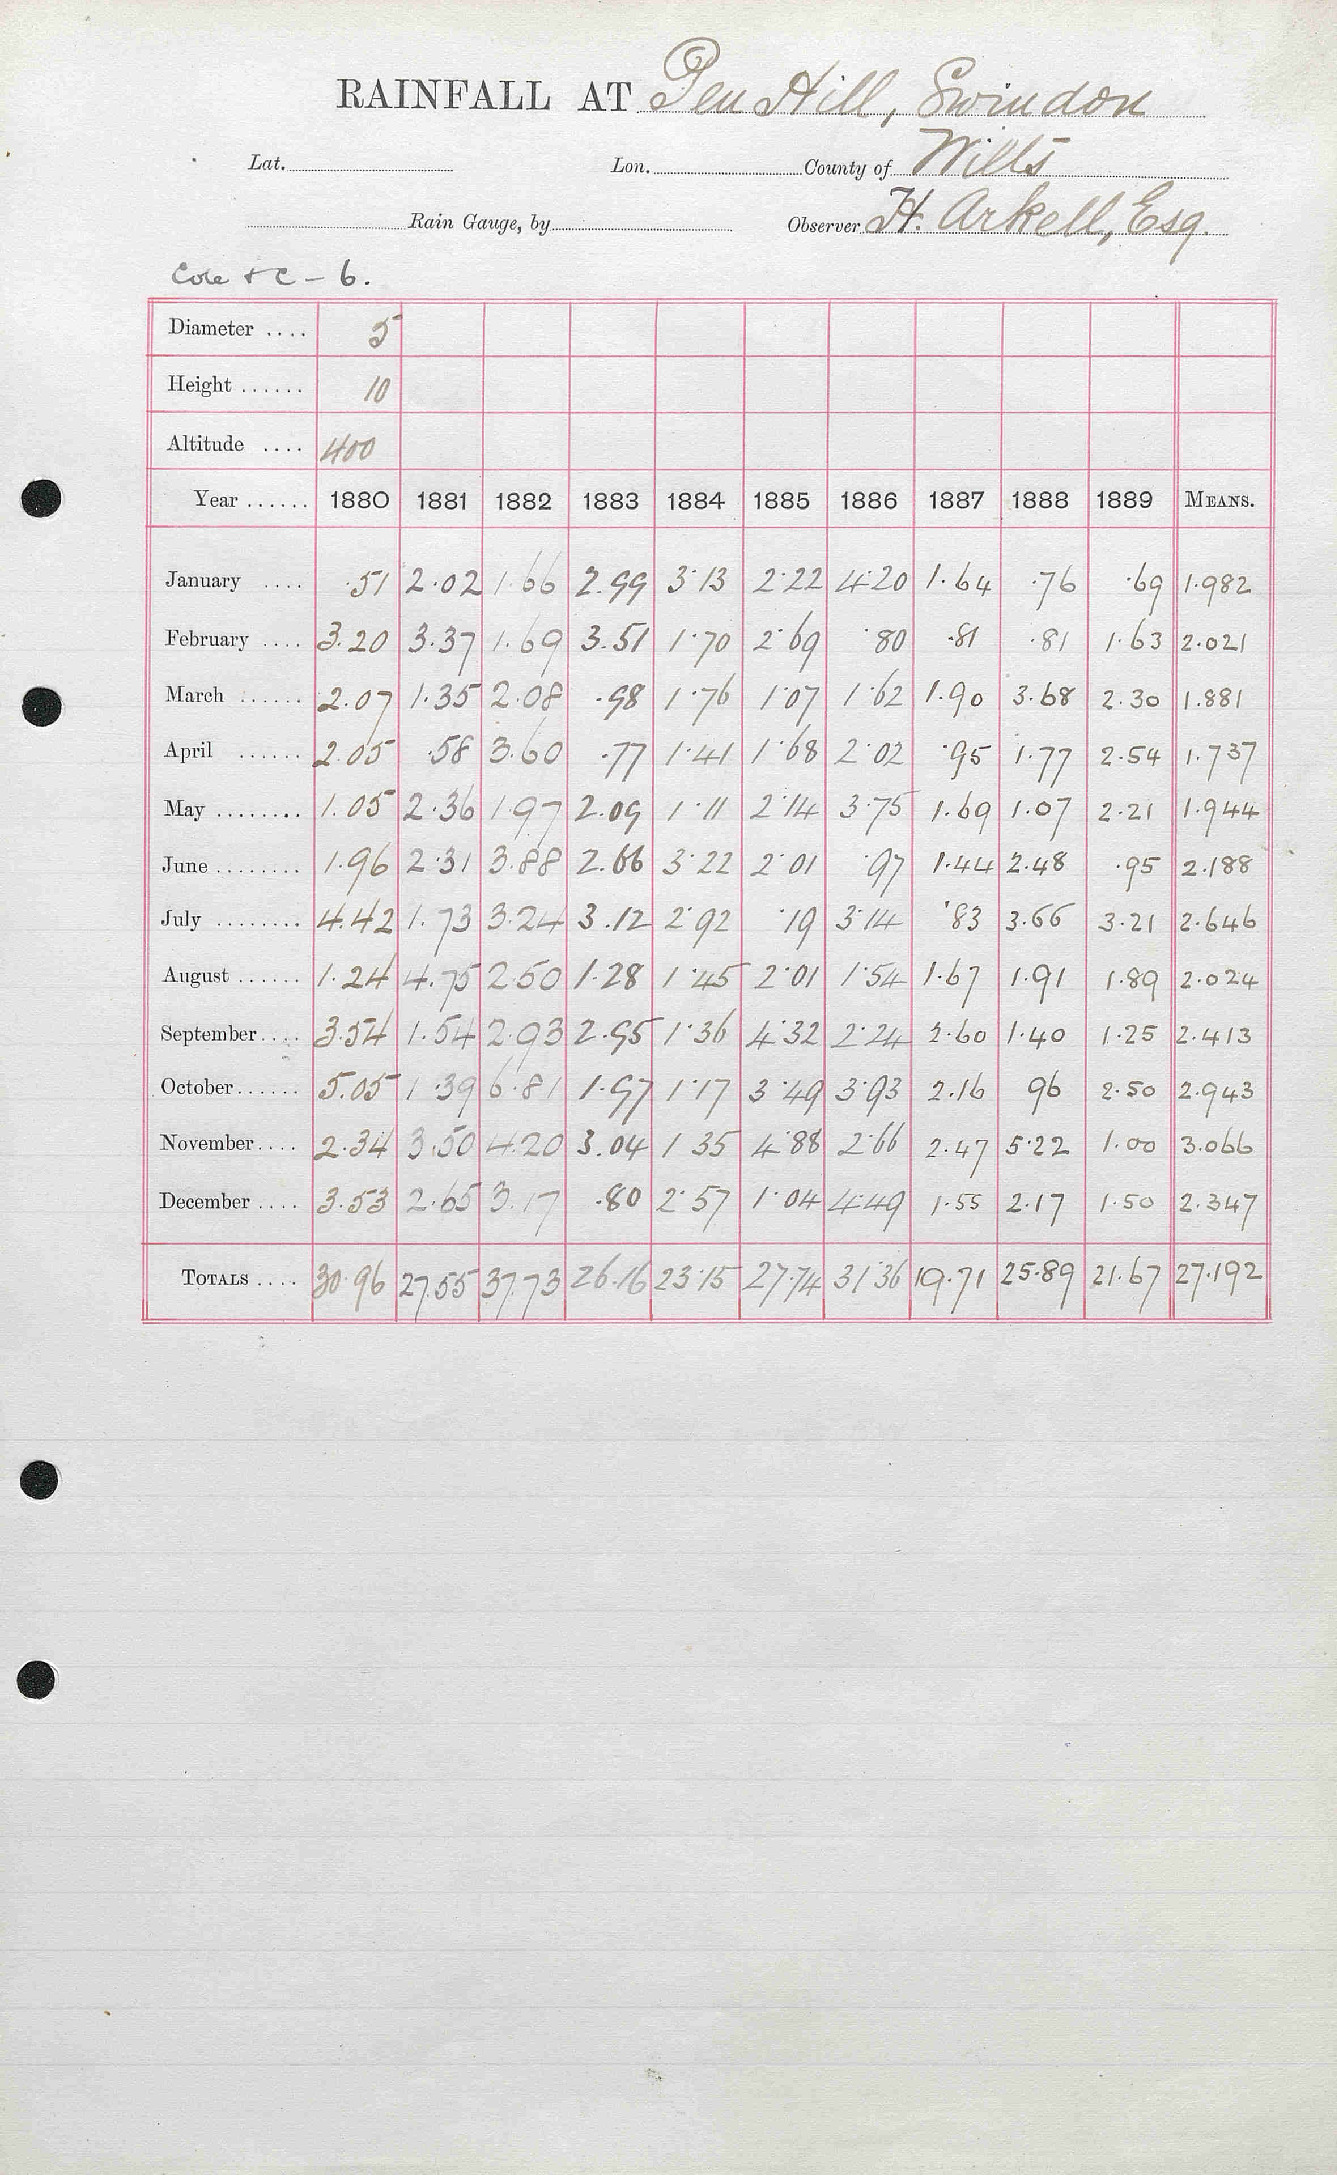 RAINFALL AT Pen Hill, Swindon
Lat. Lon. County of Wilts
Rain Gauge, by Observer H. Arkell, Esq.
Cole & C – 6.
Diameter .... 5
Height ...... 10
Altitude .... 400
Year ...... 1880 1881 1882 1883 1884 1885 1886 1887 1888 1889 MEANS.
January .... .51 2.02 1.66 2.99 3.13 2.22 4.20 1.64 .76 .69 1.982
February .... 3.20 3.37 1.69 3.51 1.70 2.69 .80 .81 .81 1.63 2.021
March ...... 2.07 1.35 2.08 .98 1.76 1.07 1.62 1.90 3.68 2.30 1.881
April ...... 2.05 .58 3.60 .77 1.41 1.68 2.02 .95 1.77 2.54 1.737
May ........ 1.05 2.36 1.97 2.09 1.11 2.14 3.75 1.69 1.07 2.21 1.944
June ........ 1.96 2.31 3.88 2.66 3.22 2.01 .97 1.44 2.48 .95 2.188
July ........ 4.42 1.73 3.24 3.12 2.92 .19 3.14 .83 3.66 3.21 2.646
August ...... 1.24 4.75 2.50 1.28 1.45 2.01 1.54 1.67 1.91 1.89 2.024
September .... 3.54 1.54 2.93 2.95 1.36 4.32 2.24 2.60 1.40 1.25 2.413
October ...... 5.05 1.39 6.81 1.97 1.17 3.49 3.93 2.16 96 2.50 2.943
November .... 2.34 3.50 4.20 3.04 1 35 4.88 2.66 2.47 5.22 1.00 3.066
December .... 3.53 2.65 3.17 .80 2.57 1.04 4.49 1.55 2.17 1.50 2.347
TOTALS .... 30.96 27.55 37.73 26.16 23.15 27.74 31.36 19.71 25.89 21.67 27.192